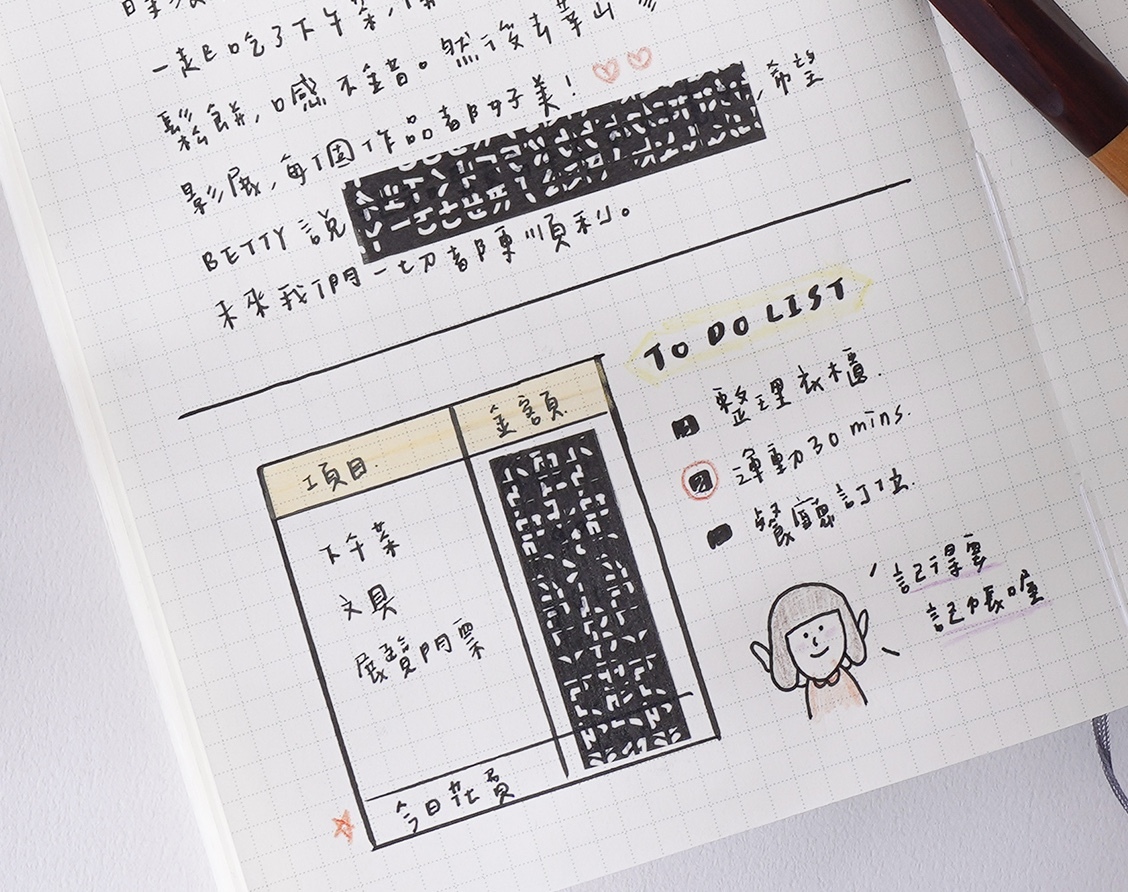 一起吃了下午茶,
鬆餅,口感不錯。然後去華山
影展,每個作品都好美!
BETTY 說 ,希望
未來我們一切都陳順利。
項目 金額
下午茶
文具
展覽門票
今日花費
TO DO LIST
整理衣櫃.
運動30 mins.
餐廳訂位.
記得要
記帳喔